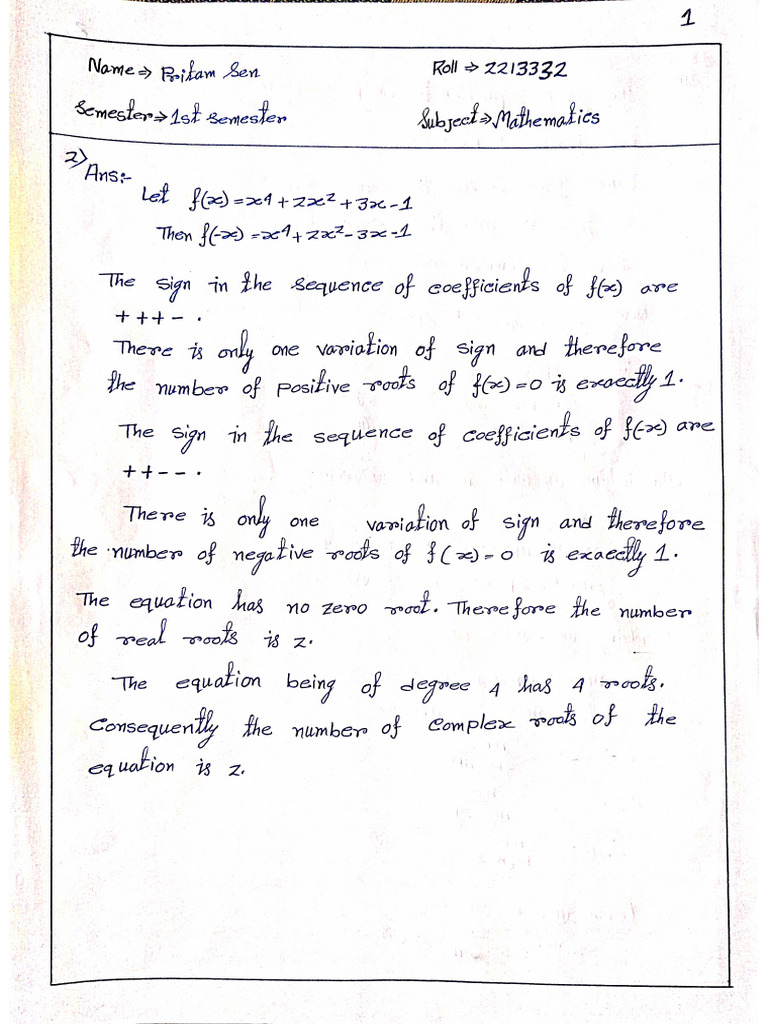 1
Name⇒ Pritam Sen Roll ⇒ 2213332
Semester⇒ 1st semester Subject⇒ Mathematics
2)
Ans:-
Let f(x) = x⁴ + 2x² + 3x - 1
Then f(-x) = x⁴ + 2x² - 3x - 1
The sign in the sequence of coefficients of f(x) are
+ + + - .
There is only one variation of sign and therefore
the number of positive roots of f(x) = 0 is exaectly 1.
The sign in the sequence of coefficients of f(-x) are
+ + - - .
There is only one variation of sign and therefore
the number of negative roots of f( x) = 0 is exaectly 1.
The equation has no zero root. Therefore the number
of real roots is 2.
The equation being of degree 4 has 4 roots.
Consequently the number of complex roots of the
equation is 2.